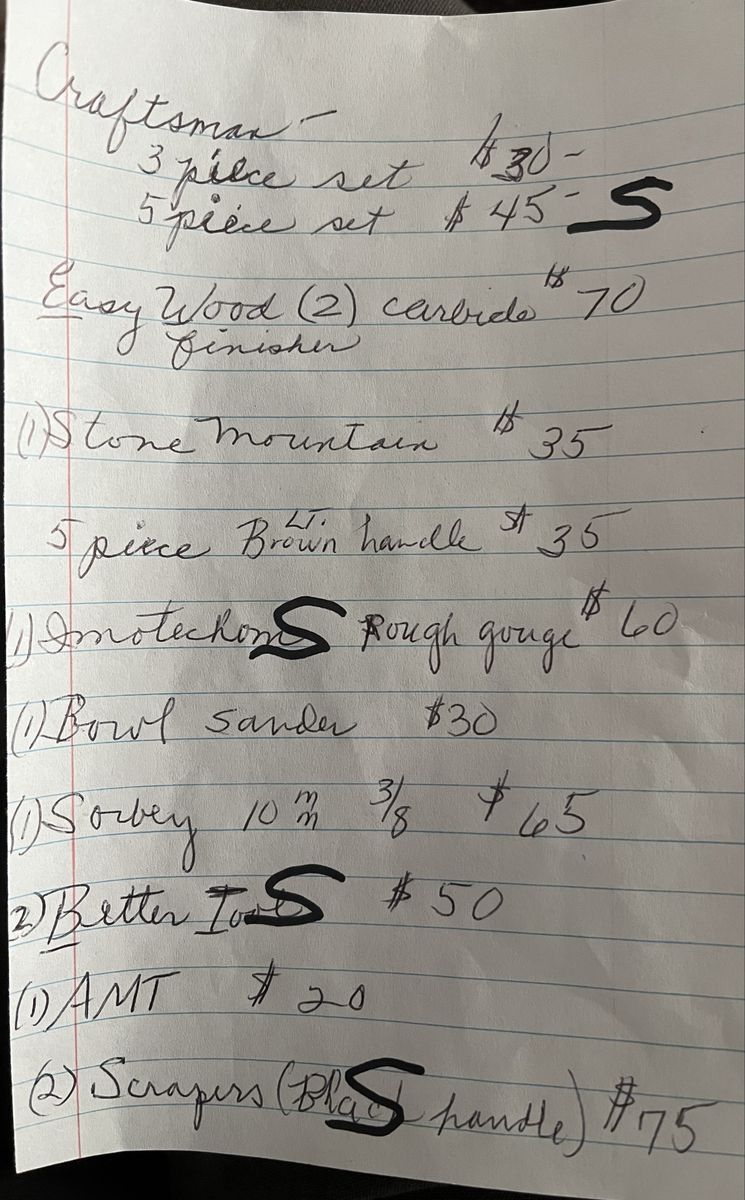 Craftsman -
3 piece set $30-
5 piece set $45- S
Easy Wood (2) carbide $70
finisher
(1) Stone Mountain $35
5 piece LT. Brown handle $35
(1) S Rough gouge $60
(1) Bowl sander $30
(1) Sorbey 10 mm 3/8 $65
2) Better S $50
(1) AMT $20
(2) Scrapers (Black S handle) $75